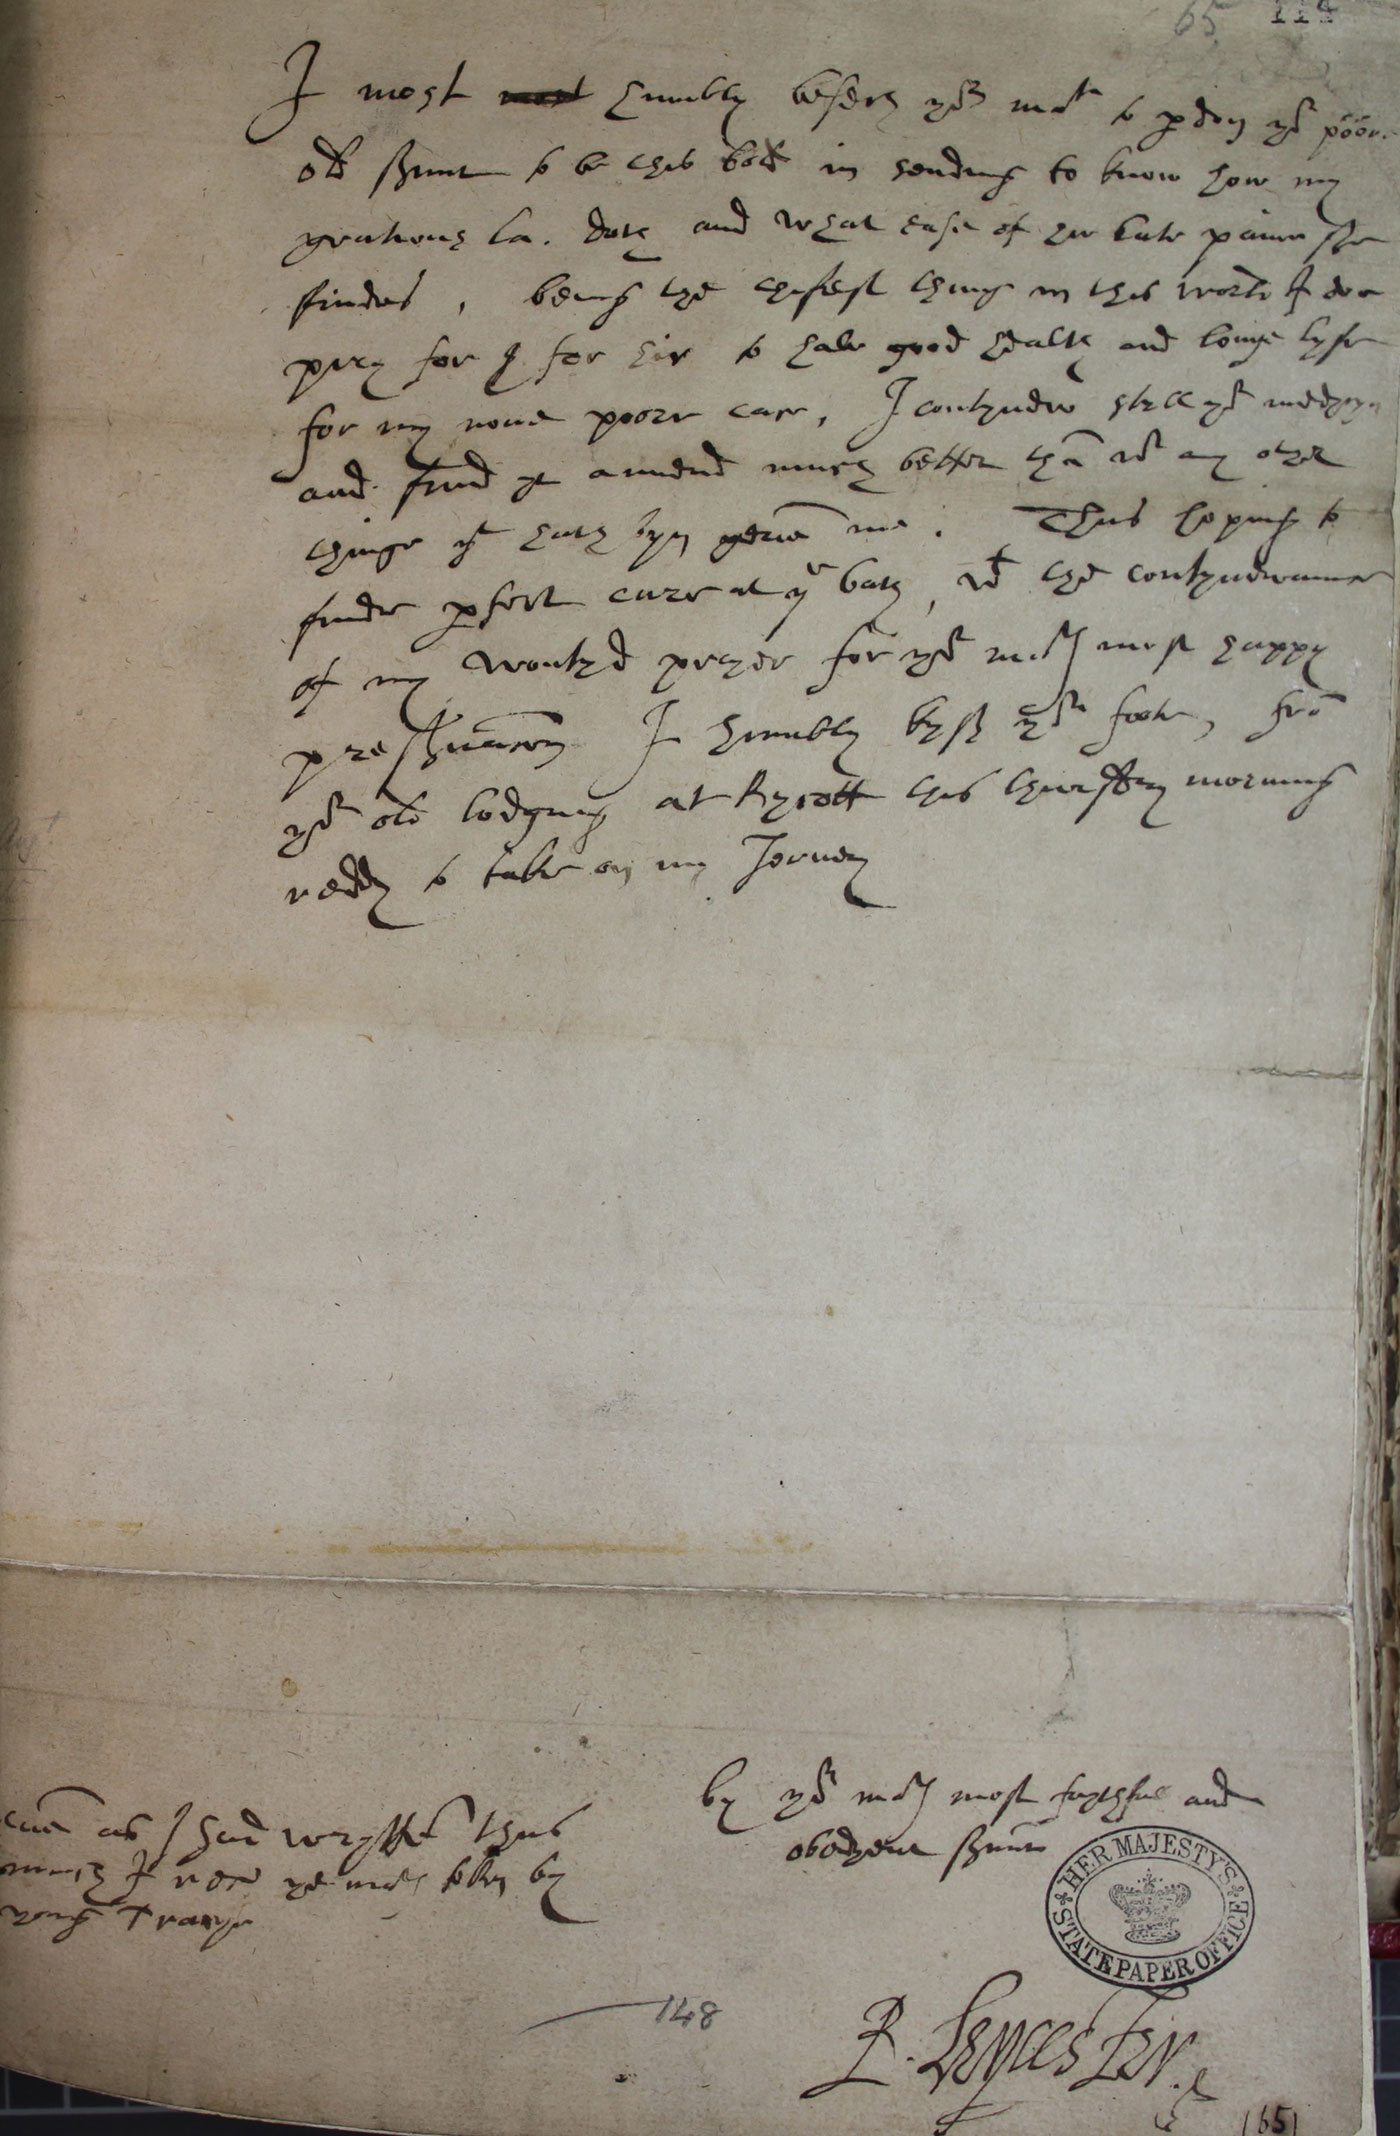 65 114
I most most humbly besech yor matie to pdon yor pöör
old svunt to be this bold in sending to know how my
gratious la. doth and what ease of her late paine she
findes, being the chefest thing in this world I doe
prey for & for hir to have good health and longe lyfe
for my none poore case, I contynew still yor medycyn
and fynd yt amend much better thã wt any other
thinge yt hath byn geven me. Thus hoping to
finde pfect cure at ye bath, wt the contynewance
of my wontyd preyer for yor maties most happy
preservacion I humbly kyss yor foote, frõ
yor old lodging at Rycott this thursday morning
reddy to take on my Jorney
by yor maties most faythfull and
obedyent svunt
HER MAJESTY'S STATE PAPER OFFICE
R. Leycester
even as I had wrytten thus
much I rece yor maties token by
yong Tracye
148
(65)